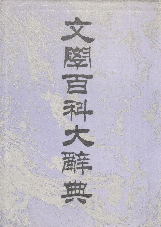 文學百科大辭典